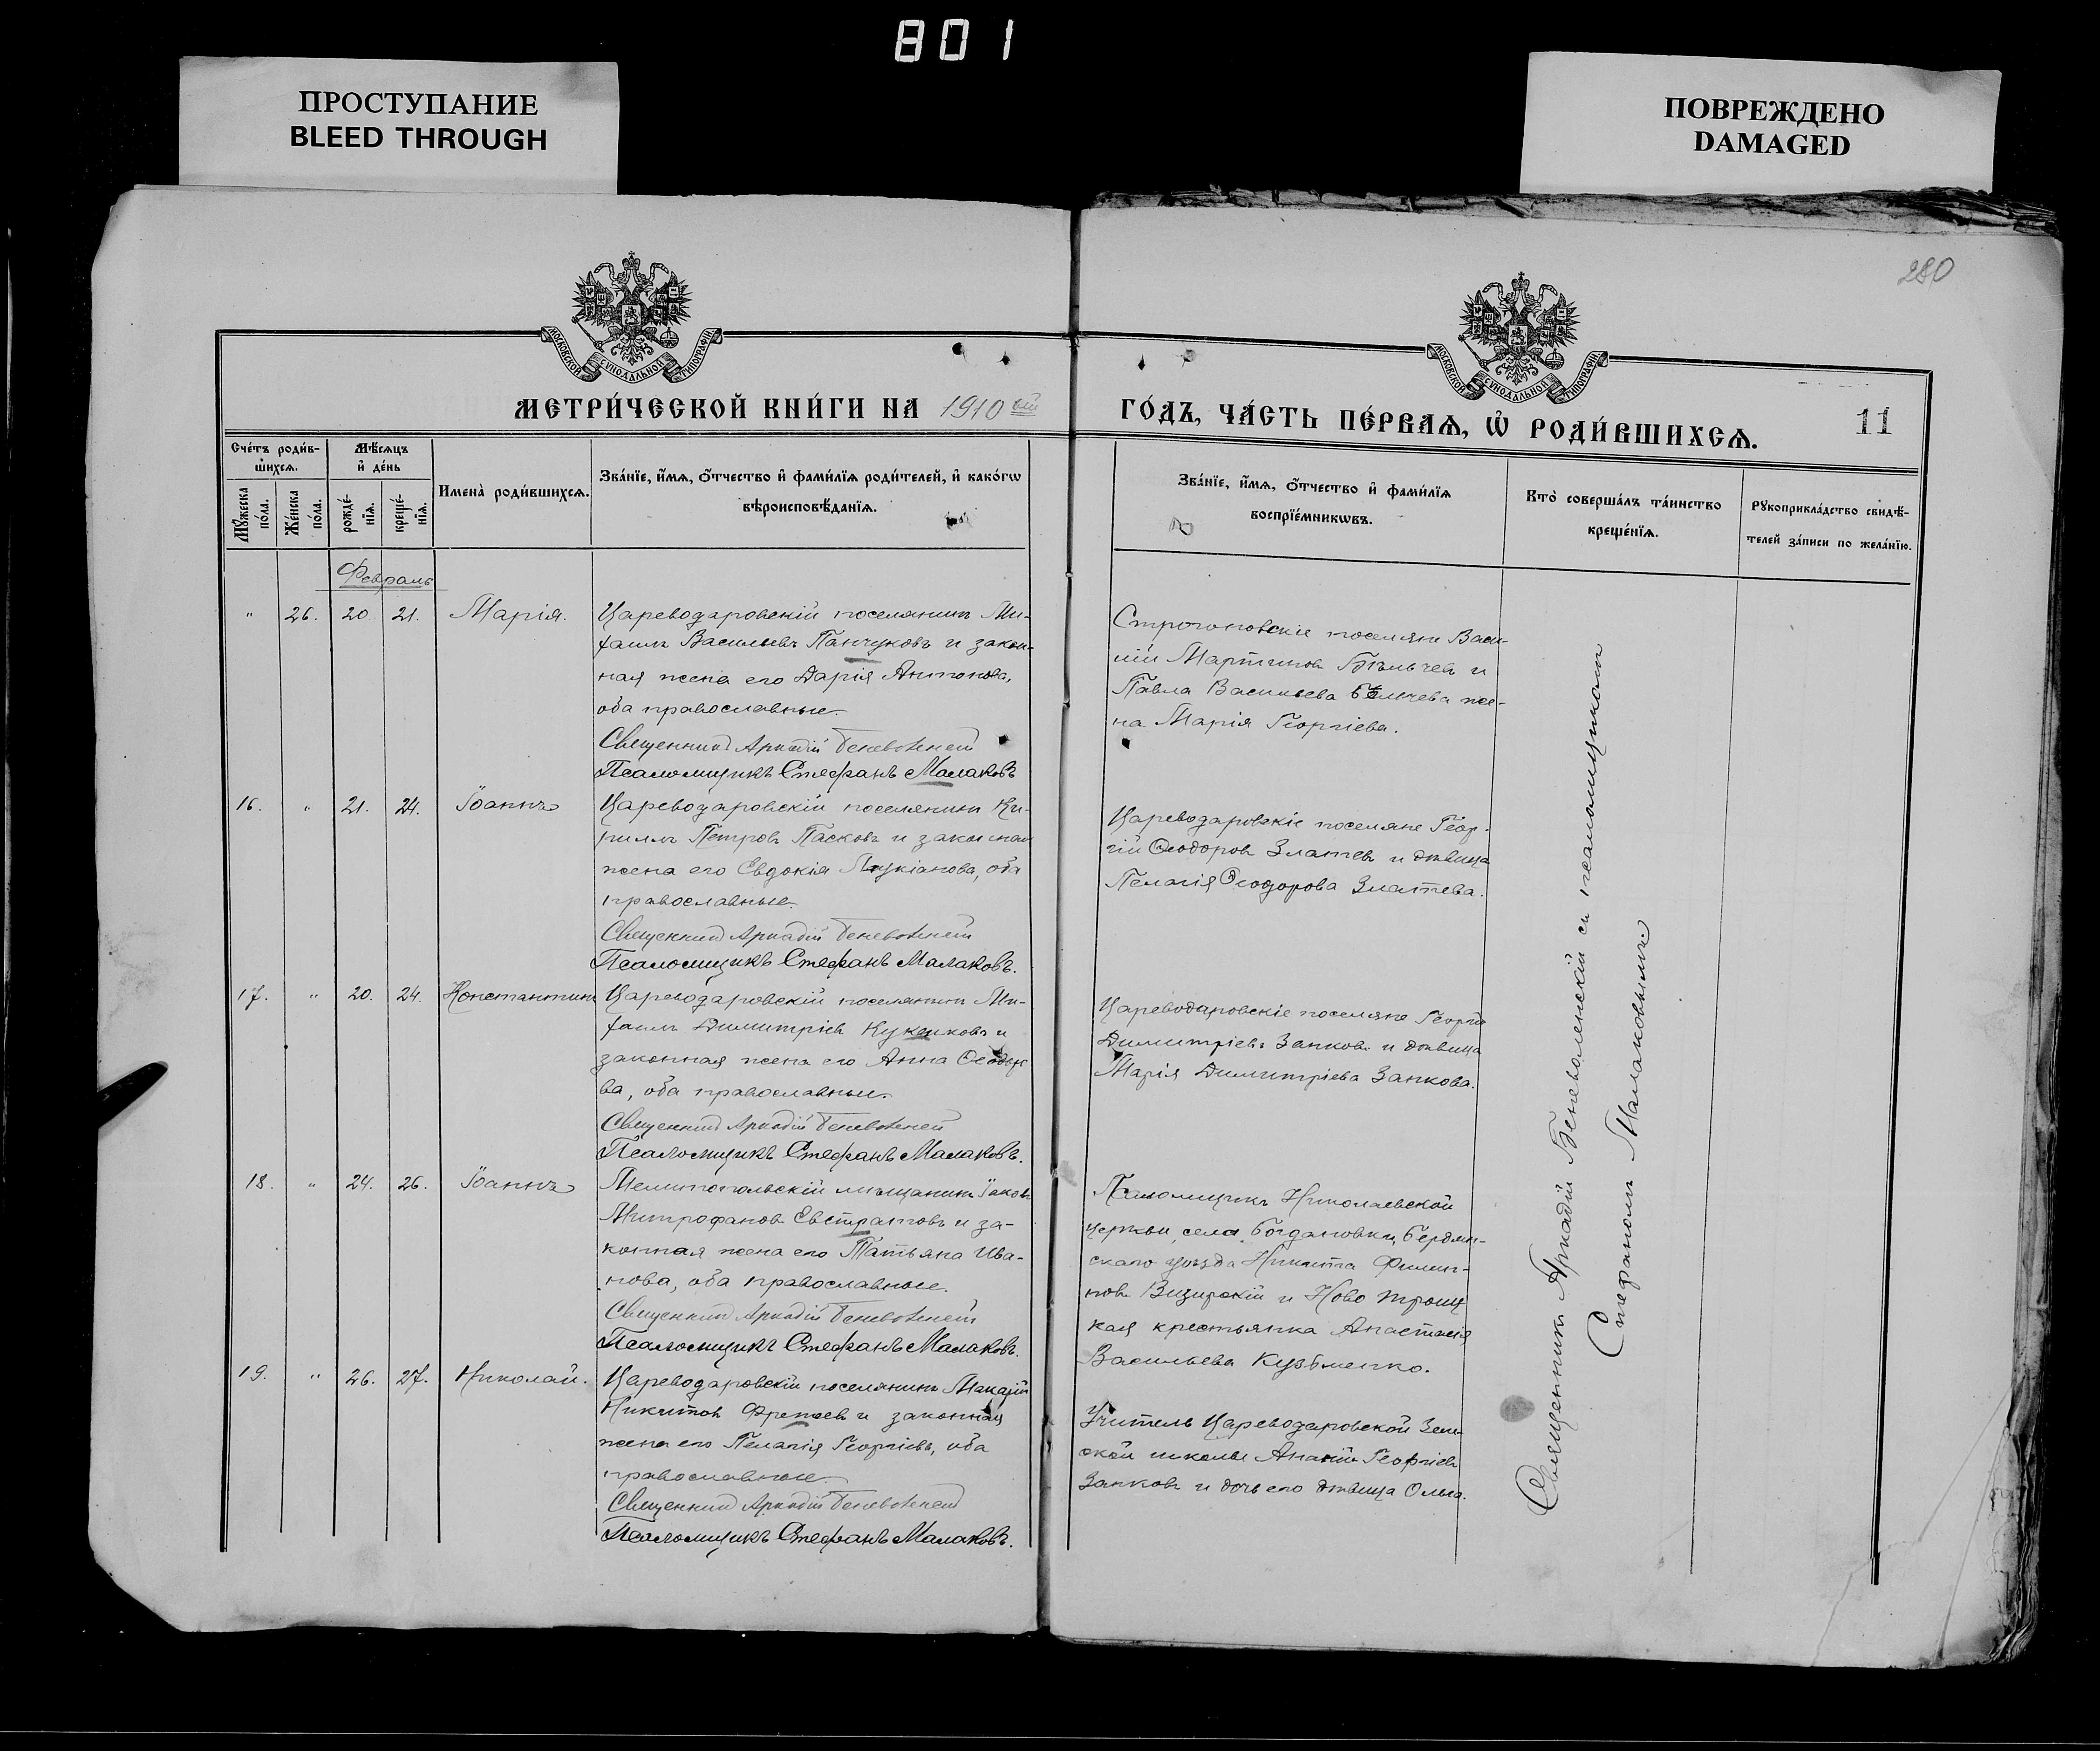 801
ПРОСТУПАНИЕ
BLEED THROUGH
ПОВРЕЖДЕНО
DAMAGED
280
МОСКОВСКОЙ СѴНОДАЛЬНОЙ ТИПОГРАФІИ
МОСКОВСКОЙ СѴНОДАЛЬНОЙ ТИПОГРАФІИ
МЕТРИ́ЧЕСКОЙ КНИ́ГИ НА 1910 ый
ГО́ДЪ, ЧА́СТЬ ПЕ́РВАѦ, Ѽ РОДИ́ВШИХСѦ.
11
Сче́тъ роди́в-
шихсѧ.
Мѣ́сѧцъ
и҆ де́нь
Мꙋ́жеска по́ла.
Же́нска по́ла.
рожде́-
нїѧ.
креще́-
нїѧ.
Имена̀ роди́вшихсѧ.
Зва́нїе, и҆́мѧ, ѻ҆́тчество и҆ фами́лїѧ роди́телей, и҆ како́гѡ
вѣроисповѣ́данїѧ.
Зва́нїе, и҆́мѧ, ѻ҆́тчество и҆ фами́лїѧ
воспрїе́мникѡвъ.
Кто̀ соверша́лъ та́инство
креще́нїѧ.
Рꙋкоприкла́дство свидѣ́-
телей за́писи по жела́нїю.
Февраль
" 26. 20 21. Марія.
Цареводаровскій поселянинъ Ми-
хаилъ Васильевъ Панчуковъ и закон-
ная жена его Дарія Антонова,
оба православные.
Священникъ Аркадій Беневоленскій
Псаломщикъ Стефанъ Малаковъ
Строгоновскіе поселяне Васи-
лій Мартиновъ Бѣльчевъ и
Павла Васильева Бѣльчева же-
на Марія Георгіева.
16. " 21. 24. Іоаннъ
Цареводаровскій поселянинъ Ки-
риллъ Петровъ Пасковъ и законная
жена его Евдокія Лукіанова, оба
православные.
Священникъ Аркадій Беневоленскій
Псаломщикъ Стефанъ Малаковъ.
Цареводаровскіе поселяне Геор-
гій Ѳеодоровъ Златевъ и дѣвица
Пелагія Ѳеодорова Златева.
17. " 20. 24. Константинъ
Цареводаровскій поселянинъ Ми-
хаилъ Димитріевъ и
законная жена его Анна Ѳеодоро
ва, оба православные.
Священникъ Аркадій Беневоленскій
Псаломщикъ Стефанъ Малаковъ.
Цареводаровскіе поселяне Георгій
Димитріевъ Занковъ и дѣвица
Марія Димитріева Занкова.
18. " 24. 26. Іоаннъ
Мелитопольскій мѣщанинъ Іаковъ
Митрофановъ Евстратовъ и за-
конная жена его Татьяна Ива-
нова, оба православные.
Священникъ Аркадій Беневоленскій
Псаломщикъ Стефанъ Малаковъ.
Псаломщикъ Николаевской
церкви села Богдановки, Бердян-
скаго уѣзда Никита Филип-
повъ Визирскій и Ново Троиц
кая крестьянка Анастасія
Васильева Кузьменко.
19. " 26. 27. Николай.
Цареводаровскій поселянинъ Макарій
Никитовъ и законная
жена его Пелагія Георгіева, оба
православные.
Священникъ Аркадій Беневоленскій
Псаломщикъ Стефанъ Малаковъ.
Учитель Цареводаровской Зем-
ской школы Ананій Георгіевъ
Занковъ и дочь его дѣвица Ольга.
Священникъ Аркадій Беневоленскій съ псаломщикомъ
Стефаномъ Малаковымъ